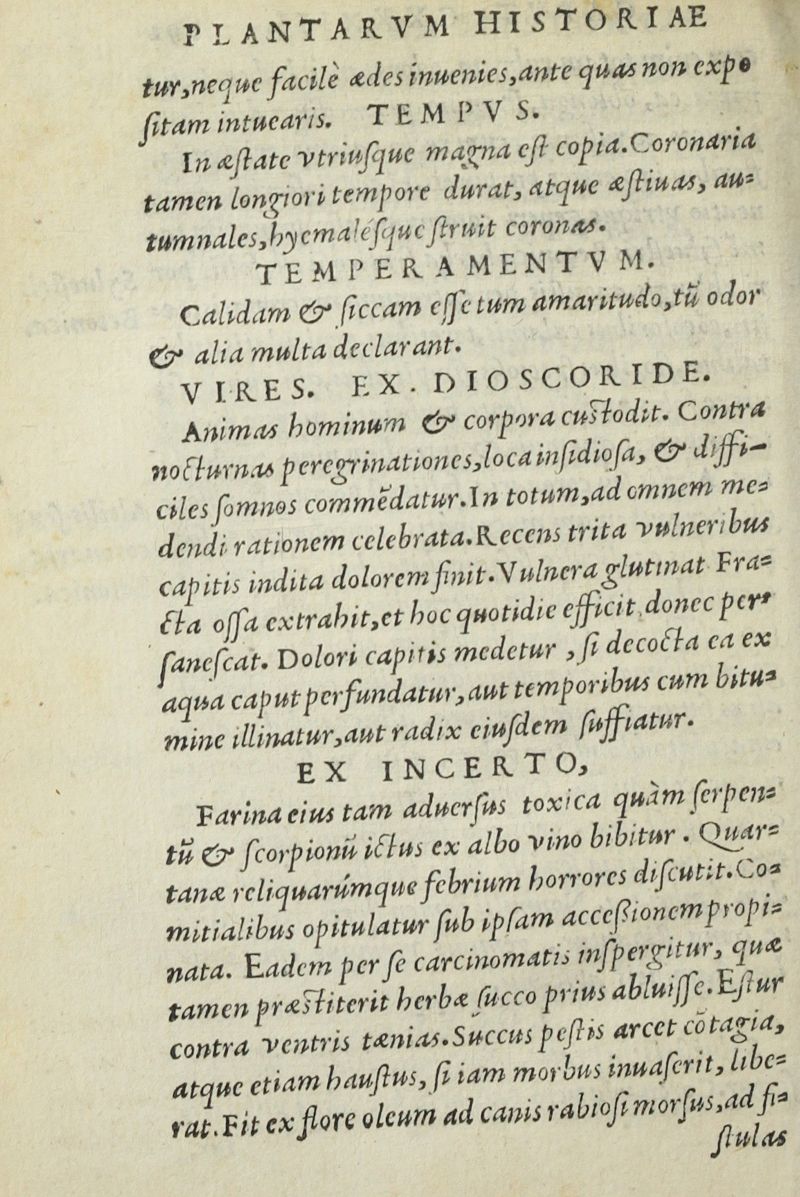 PLANTARVM HISTORIAE
tur, neque facilè ædes inuenies, ante quas non expo
ſitam intuearis. TEMPVS.
In æſtate vtriuſque magna eſt copia. Coronaria
tamen longiori tempore durat, atque æſtiuas, au-
tumnales, hyemaléſque ſtruit coronas.
TEMPERAMENTVM.
Calidam & ſiccam eſſe tum amaritudo, tũ odor
& alia multa declarant.
VIRES. EX. DIOSCORIDE.
Animas hominum & corpora cuſtodit. Contra
nocturnas peregrinationes, loca inſidioſa, & diffi-
ciles ſomnos commẽdatur. In totum, ad omnem me-
dendi rationem celebrata. Recens trita vulneribus
capitis indita dolorem finit. Vulnera glutinat Fra-
cta oſſa extrahit, et hoc quotidie efficit donec per-
ſaneſcat. Dolori capitis medetur, ſi decocta ea ex
aqua caput perfundatur, aut temporibus cum bitu-
mine illinatur, aut radix eiuſdem ſuffiatur.
EX INCERTO,
Farina eius tam aduerſus toxica quàm ſerpen-
tũ & ſcorpionũ ictus ex albo vino bibitur. Quar-
tanæ reliquarúmque febrium horrores diſcutit. Co-
mitialibus opitulatur ſub ipſam acceſsionem propi-
nata. Eadem per ſe carcinomatis inſpergitur, quæ
tamen præſtiterit herbæ ſucco prius abluiſſe. Eſtur
contra ventris tænias. Succus peſtis arcet cõtagia,
atque etiam hauſtus, ſi iam morbus inuaſerit, libe-
rat. Fit ex flore oleum ad canis rabioſi morſus, ad fi-
ſtulas